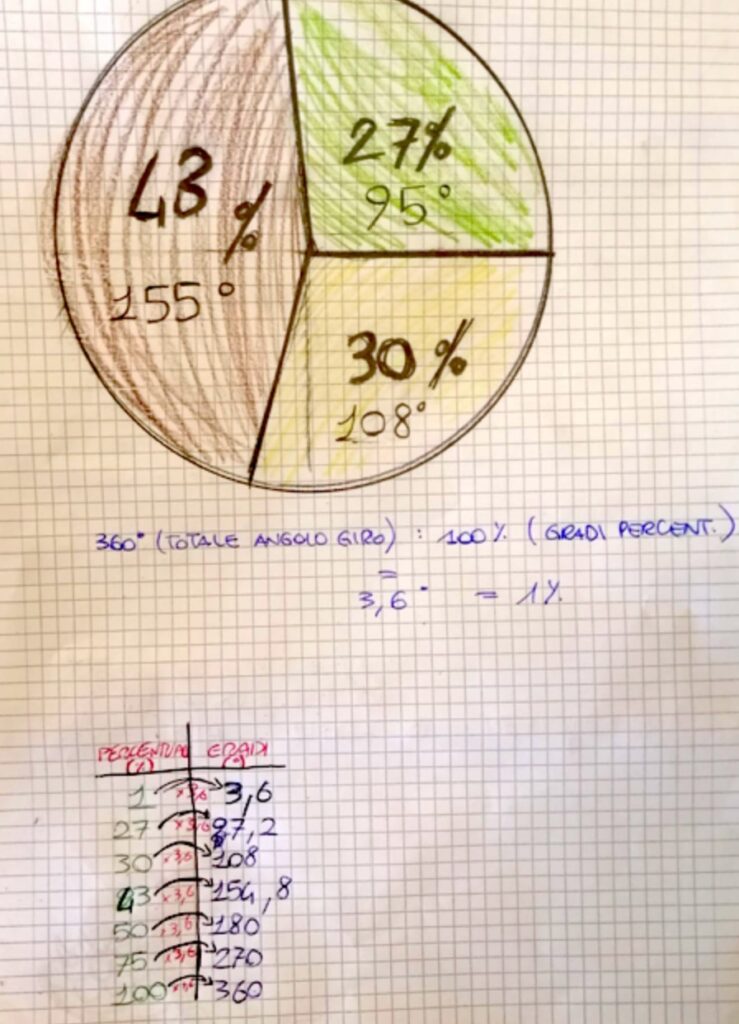 27%
95°
43%
155°
30%
108°
360° (TOTALE ANGOLO GIRO) : 100% (GRADI PERCENT.)
=
3,6° = 1%
PERCENTUALI GRADI
(%) (°)
1 ×3,6 3,6
27 ×3,6 97,2
30 ×3,6 108
43 ×3,6 154,8
50 ×3,6 180
75 ×3,6 270
100 ×3,6 360